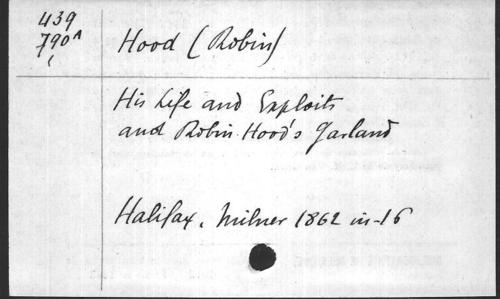 439
790^A
Hood (Robin)
His Life and Exploits
and Robin Hood's Garland
Halifax, Milner 1862 in-16